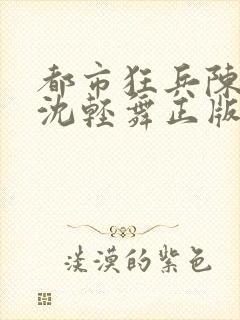 都市狂兵陳
沈輕舞正版
淡漠的紫色